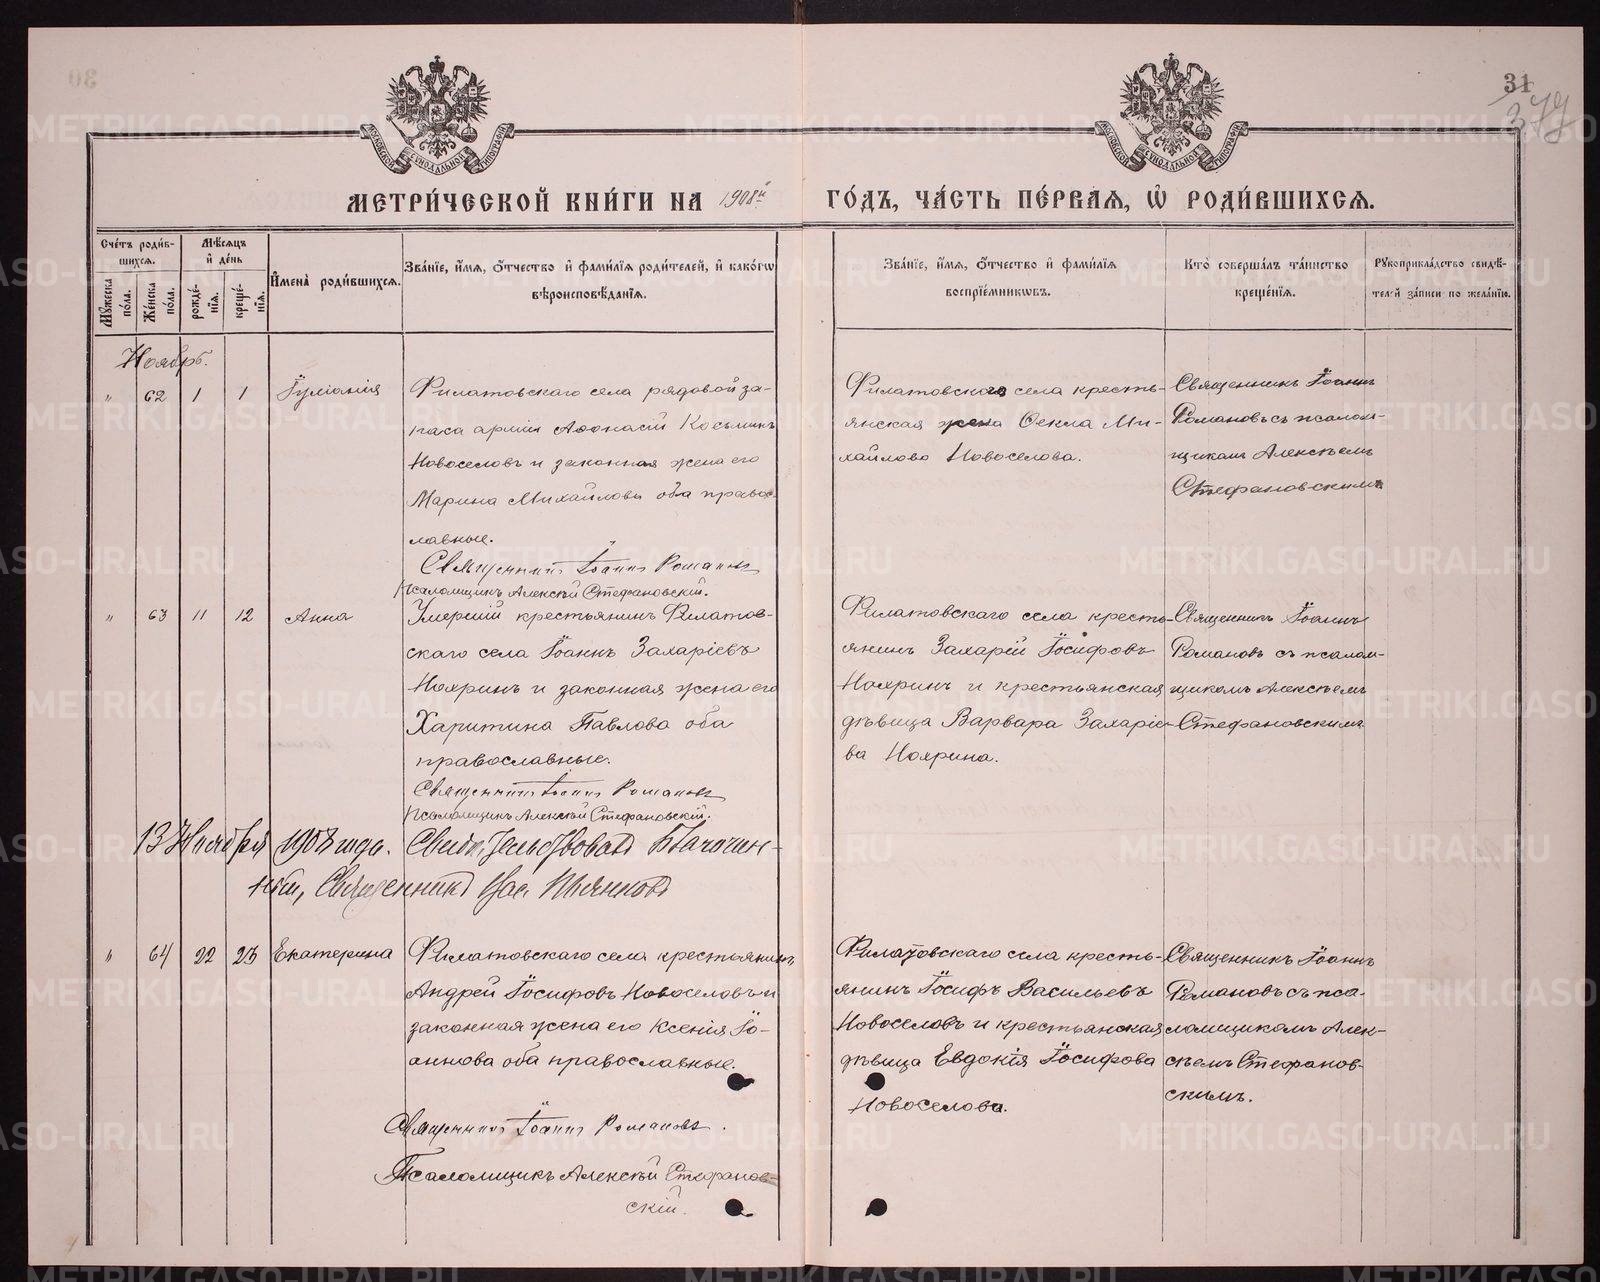 31
379
МЕТРИ́ЧЕСКОЙ КНИ́ГИ НА 1908й ГО́ДЪ, ЧА́СТЬ ПЕ́РВАЯ, Ѡ РОДИ́ВШИХСЯ.
Сче́тъ роди́в-
шихся.
Мꙋжеска по́ла.
Же́нска по́ла.
Мѣ́сяцъ
и҆ де́нь
рожде́-
нїя.
креще́-
нїя.
И҆мена̀ роди́вшихся.
Зва́нїе, и҆́мя, ѻ҆́тчество и҆ фами́лїя роди́телей, и҆ како́гѡ
вѣроисповѣ́данїя.
Зва́нїе, и҆́мя, ѻ҆́тчество и҆ фами́лїя
воспрїе́мникѡвъ.
Кто̀ соверша́лъ та́инство
креще́нїя.
Рꙋкоприкла́дство свидѣ́-
телей за́писи по жела́нїю.
Ноябрь.
" 62 1 1 Іуліанія
Филатовскаго села рядовой за-
паса арміи Аѳонасій Косьминъ
Новоселовъ и законная жена его
Марина Михайлова оба право-
славные.
Священникъ Іоаннъ Романовъ
Псаломщикъ Алексѣй Стефановскій.
Филатовскаго села кресть-
янская жена Ѳекла Ми-
хайлова Новоселова.
Священникъ Іоаннъ
Романовъ съ псалом-
щикомъ Алексѣемъ
Стефановскимъ
" 63 11 12 Анна
Умершій крестьянинъ Филатов-
скаго села Іоаннъ Захаріевъ
Нохринъ и законная жена его
Харитина Павлова оба
православные.
Священникъ Іоаннъ Романовъ
Псаломщикъ Алексѣй Стефановскій.
Филатовскаго села кресть-
янинъ Захарій Іосифовъ
Нохринъ и крестьянская
дѣвица Варвара Захаріе-
ва Нохрина.
Священникъ Іоаннъ
Романовъ съ псалом-
щикомъ Алексѣемъ
Стефановскимъ
13 Ноября 1908 года. Свидѣтельствовалъ Благочин-
ный, Священникъ
" 64 22 23 Екатерина
Филатовскаго села крестьянинъ
Андрей Іосифовъ Новоселовъ и
законная жена его Ксенія Іо-
аннова оба православные.
Священникъ Іоаннъ Романовъ.
Псаломщикъ Алексѣй Стефанов-
скій.
Филатовскаго села кресть-
янинъ Іосифъ Васильевъ
Новоселовъ и крестьянская
дѣвица Евдокія Іосифова
Новоселова.
Священникъ Іоаннъ
Романовъ съ пса-
ломщикомъ Алек-
сѣемъ Стефанов-
скимъ.
METRIKI.GASO-URAL.RU